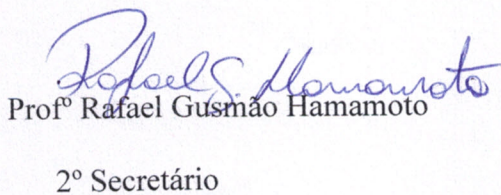 Rafael G. Hamamoto
Profº Rafael Gusmão Hamamoto
2º Secretário